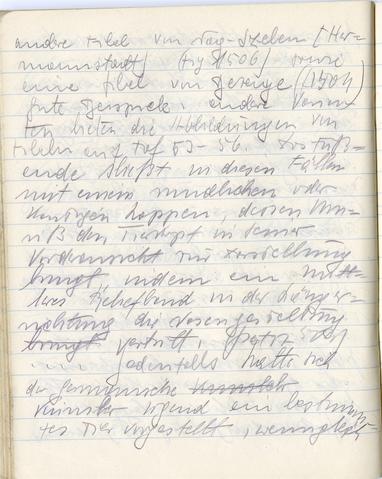 andre Fibel von Nag-Szeben (Her-
mannstadt) (Fig 506) sowie
eine Fibel von Gerenye (504)
gute Beispiele, andere Varian-
ten bieten die Abbildungen von
Fibeln auf Taf 53-56. Das Fuß-
ende schließt in diesen Fällen
mit einem rundlichen oder
knorrigen Lappen, dessen Um-
riß den Tierkopf in seiner
Vorderansicht zur Vorstellung
bringt indem ein mitt-
leres Reliefband in der Länge-
richtung die Nasen
bringt vertritt,
jedenfalls hatte sich
der germanische Künstler
Künstler irgend ein bestimm-
tes Tier vorgestellt, wenngleich